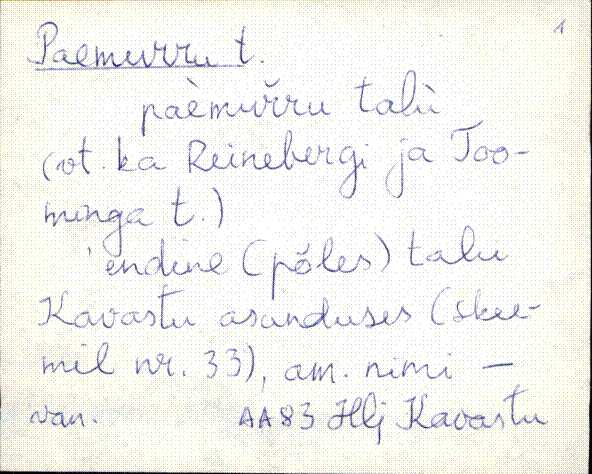 1
Paemurru t.
paèmur̆ru talù
(vt. ka Reinebergi ja Too-
minga t.)
'endine (põles) talu
Kavastu asunduses (skee-
mil nr. 33), am. nimi –
van. AA83 Hlj Kavastu